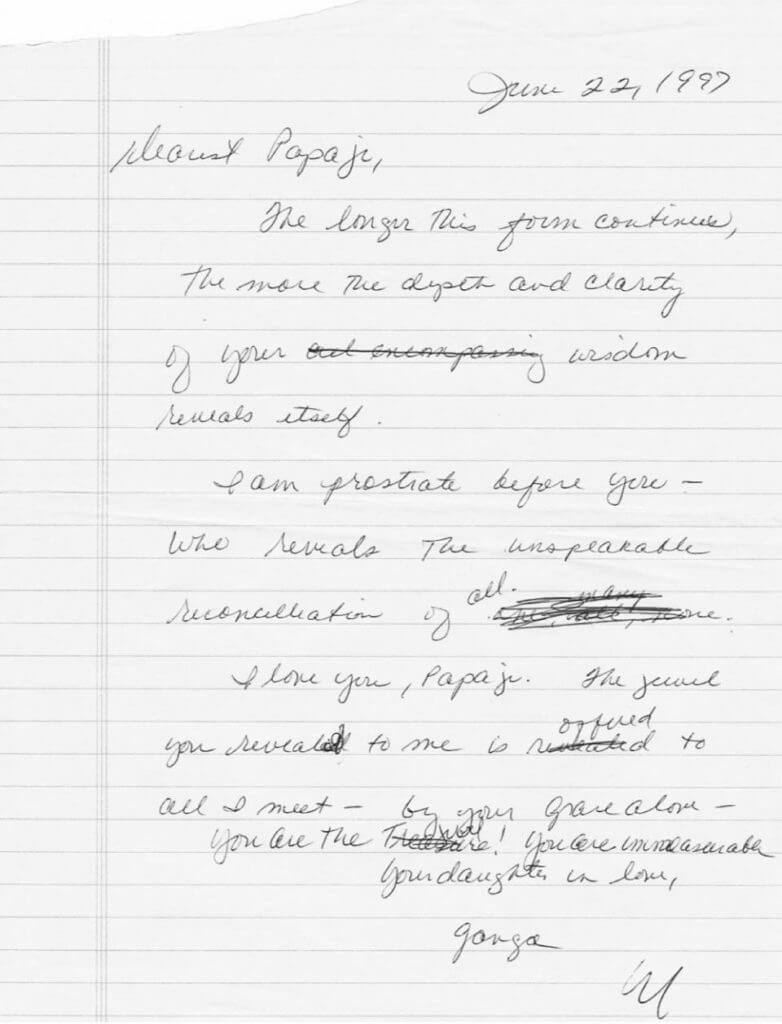 June 22, 1997
Dearest Papaji,
The longer this form continues,
the more the depth and clarity
of your all encompassing wisdom
reveals itself.
I am prostrate before you –
Who reveals the unspeakable
reconciliation of all. many one, all, none.
I love you, Papaji. The jewel
you revealed to me is revealed offered to
all I meet – by your grace alone –
you are the Treasure jewel! You are immeasurable
your daughter in love,
ganga